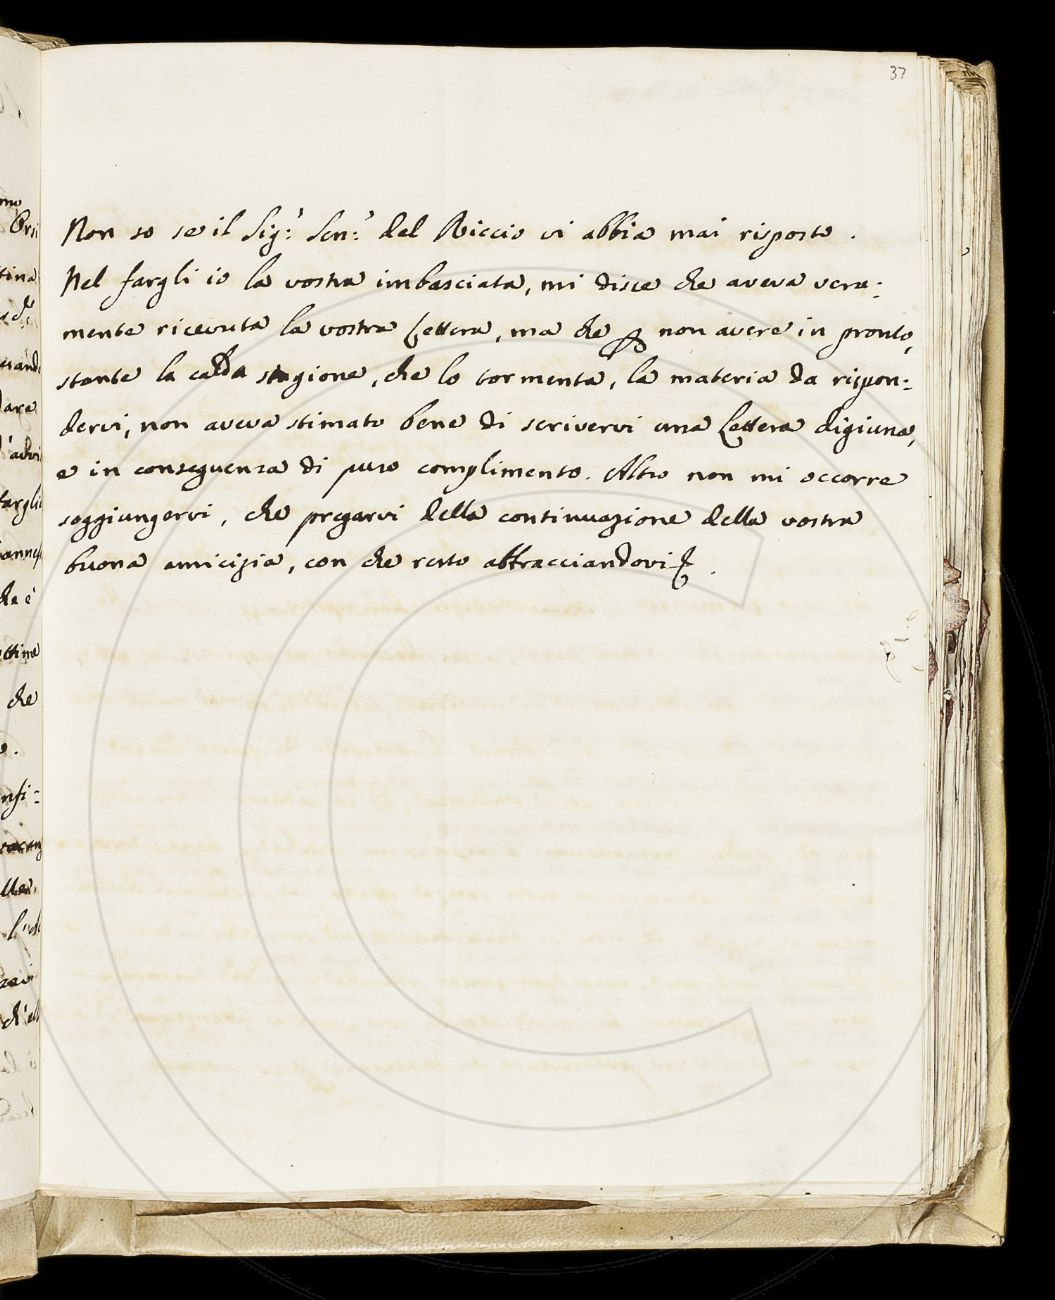 37
Non so se il Sig.r Sen.r del Riccio vi abbia mai risposto.
Nel fargli io la vostra imbasciata, mi disse che aveva vera=
mente ricevuta la vostra Lettera, ma che p non avere in pronto,
stante la calda stagione, che lo tormenta, la materia da rispon=
dervi, non aveva stimato bene di scrivervi una Lettera digiuna,
e in conseguenza di puro complimento. Altro non mi occorre
soggiungervi, che pregarvi della continuazione della vostra
buona amicizia, con che resto abbracciandovi